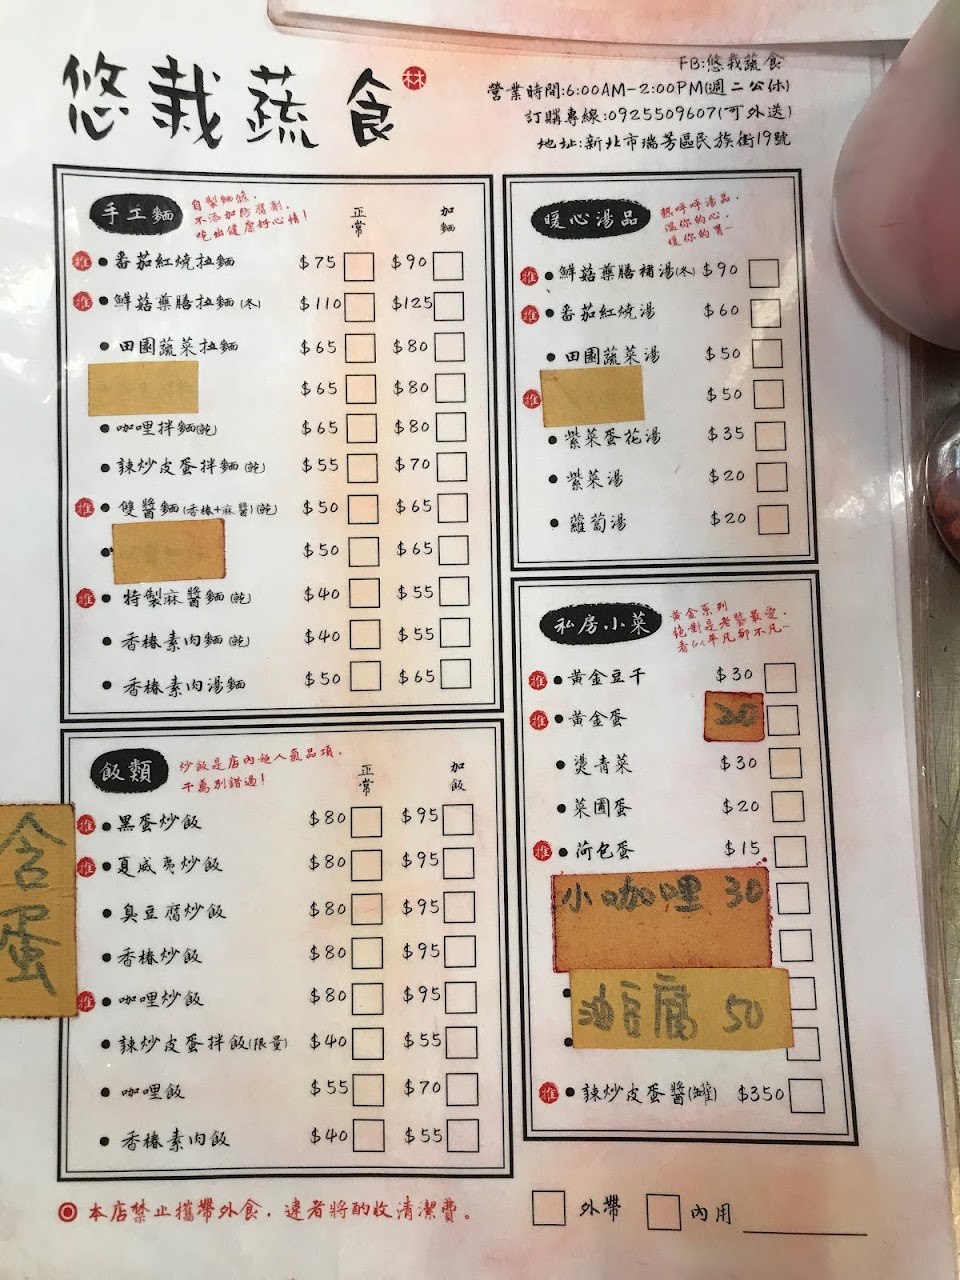 悠栽蔬食 林
FB:悠栽蔬食
營業時間:6:00AM-2:00PM(週二公休)
訂購專線:0925509607(可外送)
地址:新北市瑞芳區民族街19號
手工麵
自製麵條,
不添加防腐劑,
吃出健康好心情!
正常 加麵
推 ●番茄紅燒拉麵 $75 $90
推 ●鮮菇藥膳拉麵(冬) $110 $125
●田園蔬菜拉麵 $65 $80
$65 $80
●咖哩拌麵(乾) $65 $80
●辣炒皮蛋拌麵(乾) $55 $70
推 ●雙醬麵(香椿+麻醬)(乾) $50 $65
● $50 $65
推 ●特製麻醬麵(乾) $40 $55
●香椿素肉麵(乾) $40 $55
●香椿素肉湯麵 $50 $65
飯類
炒飯是店內超人氣品項,
千萬別錯過!
正常 加飯
推 ●黑蛋炒飯 $80 $95
推 ●夏威夷炒飯 $80 $95
●臭豆腐炒飯 $80 $95
●香椿炒飯 $80 $95
推 ●咖哩炒飯 $80 $95
●辣炒皮蛋拌飯(限量) $40 $55
●咖哩飯 $55 $70
●香椿素肉飯 $40 $55
含蛋
暖心湯品
熱呼呼湯品,
溫你的心,
暖你的胃~
推 ●鮮菇藥膳補湯(冬) $90
推 ●番茄紅燒湯 $60
●田園蔬菜湯 $50
推 $50
●紫菜蛋花湯 $35
●紫菜湯 $20
●蘿蔔湯 $20
私房小菜
黃金系列
絕對是老饕最愛,
看似平凡卻不凡~
推 ●黃金豆干 $30
推 ●黃金蛋
●燙青菜 $30
●菜圃蛋 $20
推 ●荷包蛋 $15
小咖哩 30
油豆腐 50
推 ●辣炒皮蛋醬(罐) $350
◎本店禁止攜帶外食,違者將酌收清潔費。
外帶 內用